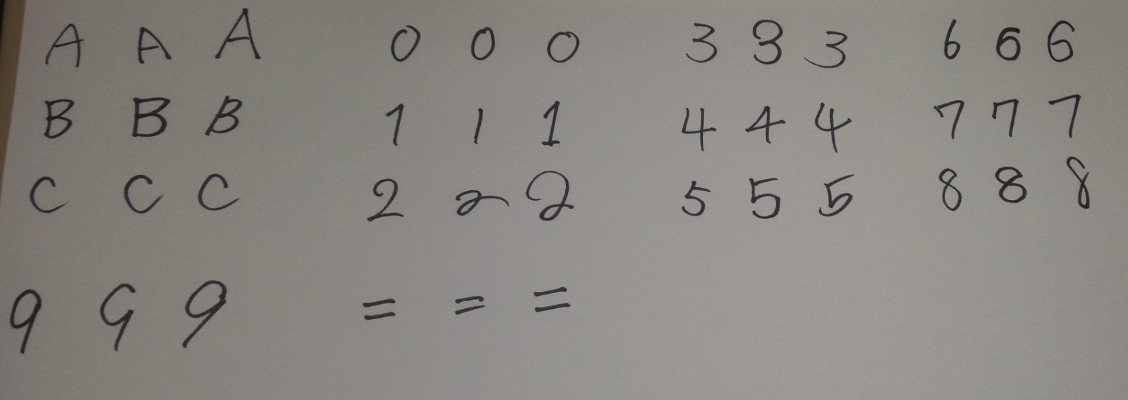 A A A 0 0 0 3 3 3 6 6 6
B B B 1 1 1 4 4 4 7 7 7
C C C 2 2 2 5 5 5 8 8 8
9 9 9 = = =